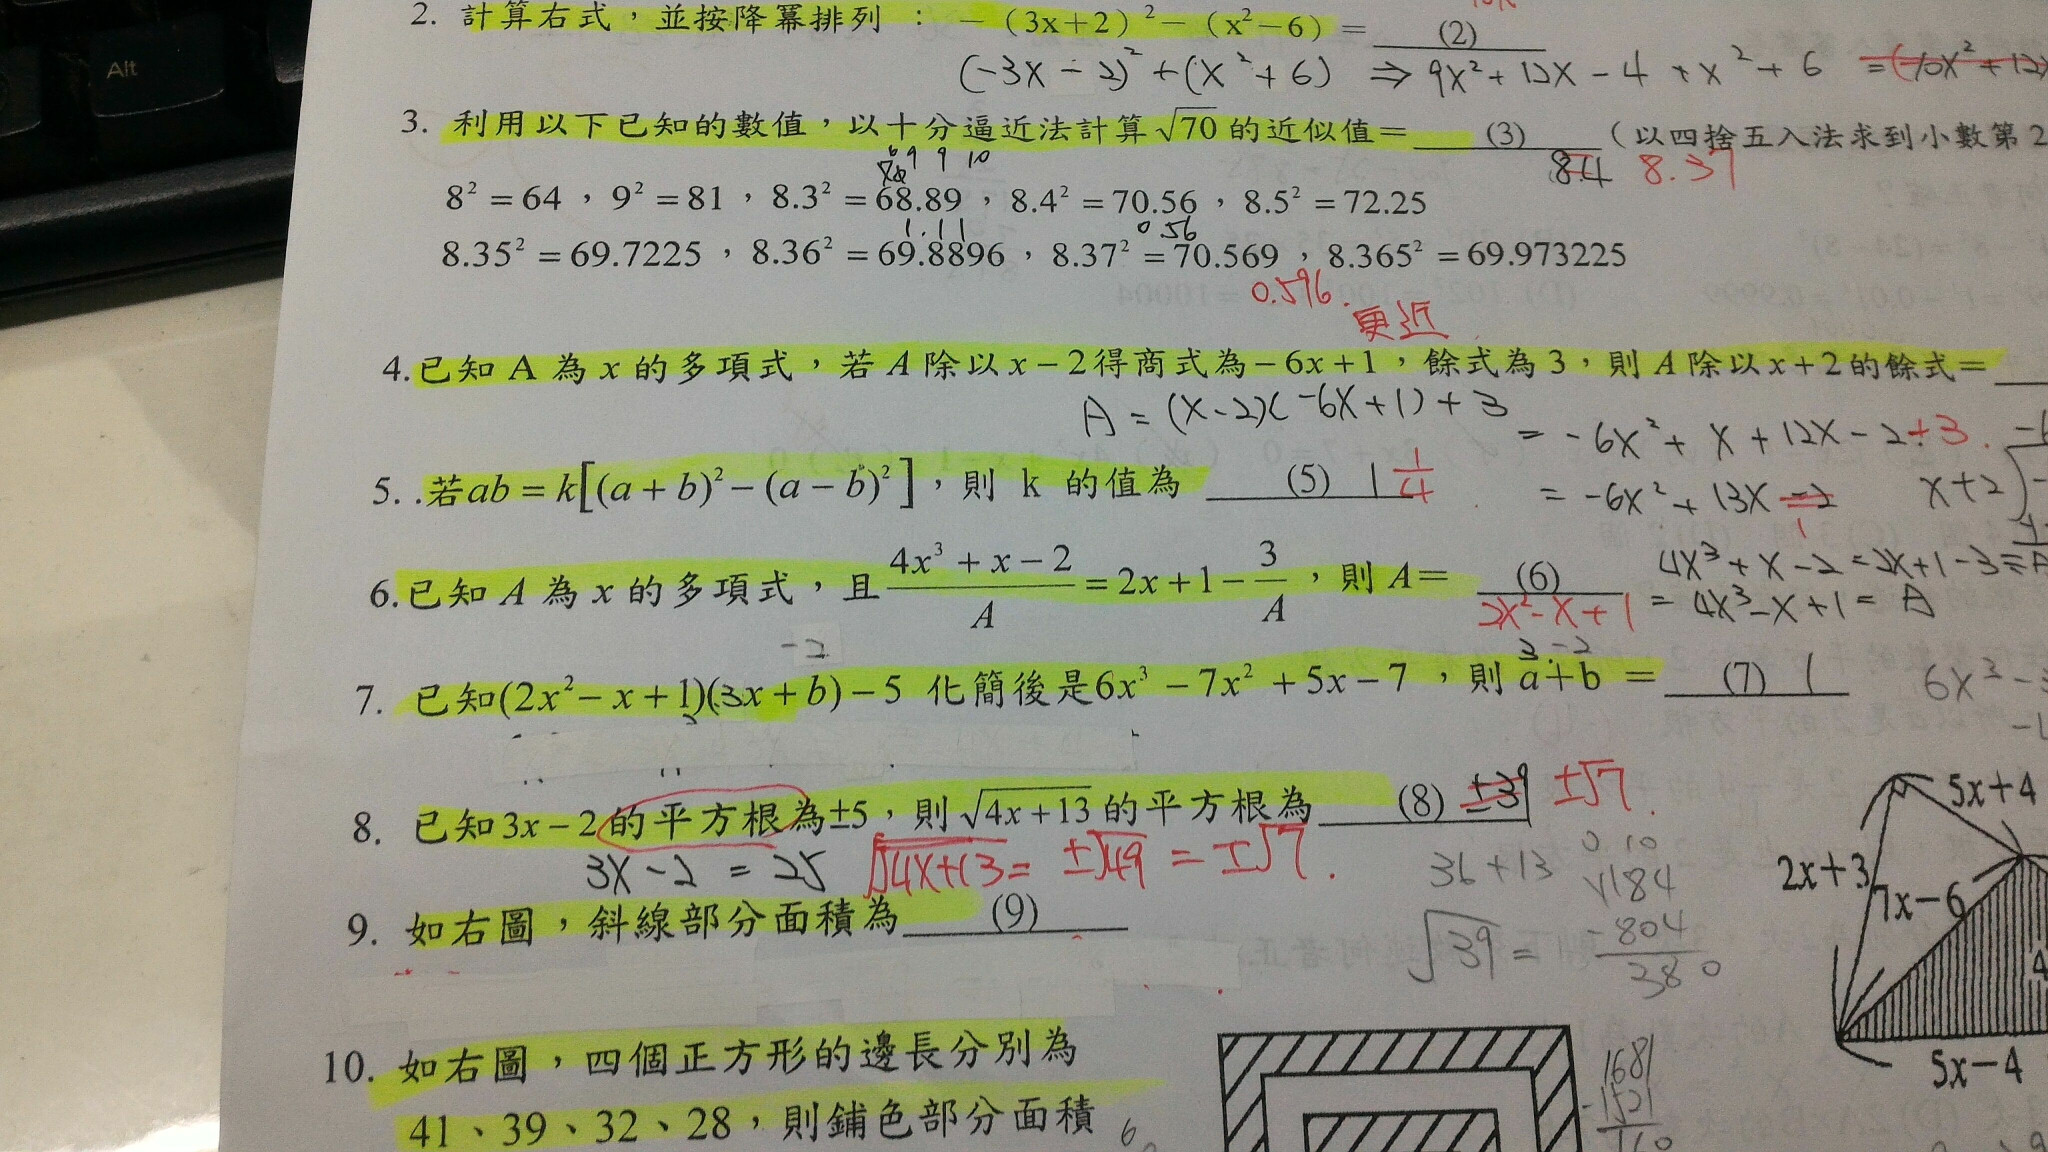 Alt
2. 計算右式，並按降冪排列：－(3x＋2)²－(x²－6)＝ (2)
(-3x-2)²+(x²+6) ⇒ 9x²+12x-4+x²+6 =(10x²+12x
3. 利用以下已知的數值，以十分逼近法計算√70的近似值＝ (3) （以四捨五入法求到小數第2
8.4 8.37
9 9 10
8²＝64，9²＝81，8.3²＝68.89，8.4²＝70.56，8.5²＝72.25
1.11 0.56
8.35²＝69.7225，8.36²＝69.8896，8.37²＝70.569，8.365²＝69.973225
0.596.
更近
4.已知A為x的多項式，若A除以x－2得商式為－6x＋1，餘式為3，則A除以x＋2的餘式＝
A = (x-2)(-6x+1)+3 = -6x²+x+12x-2+3.
5. .若ab＝k[(a＋b)²－(a－b)²]，則 k 的值為 (5) 1 1/4
= -6x²+13x-2 x+2
1
6.已知A為x的多項式，且(4x³＋x－2)/A＝2x＋1－3/A，則A＝ (6)
4x³+x-2=2x+1-3
2x²-x+1 = 4x³-x+1=A
-2 3 -2
7. 已知(2x²－x＋1)(3x＋b)－5 化簡後是6x³－7x²＋5x－7，則a＋b＝ (7) 1
6x³-3
8. 已知3x－2的平方根為±5，則√4x＋13的平方根為 (8) ±39 ±√7.
3x-2=25 √√4x+13= ±√49 = ±√7. 36+13
0 10
184
5x+4
2x+3
7x−6
9. 如右圖，斜線部分面積為 (9)
√39 = -804
380
4
5x−4
10. 如右圖，四個正方形的邊長分別為
1681
41、39、32、28，則鋪色部分面積
-1521
160
6